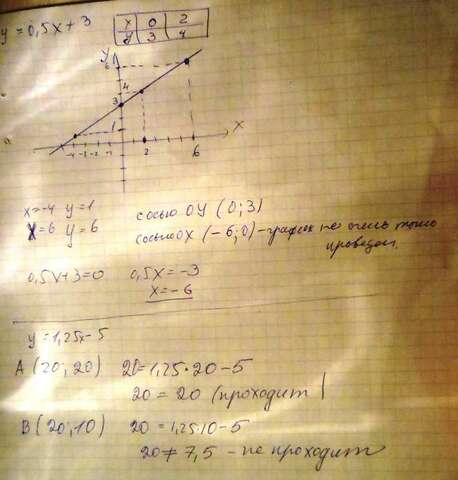 y = 0,5x + 3
x 0 2
y 3 4
y
6
4
3
1
-4 -3 -2 -1 2 6 x
x = -4 y = 1
x = 6 y = 6
с осью OY (0; 3)
с осью OX (-6; 0) - график не очень точно
проведен
0,5x + 3 = 0 0,5x = -3
x = -6
y = 1,25x - 5
A (20, 20) 20 = 1,25 · 20 - 5
20 = 20 (проходит)
B (20, 10) 20 = 1,25 · 10 - 5
20 ≠ 7,5 - не проходит